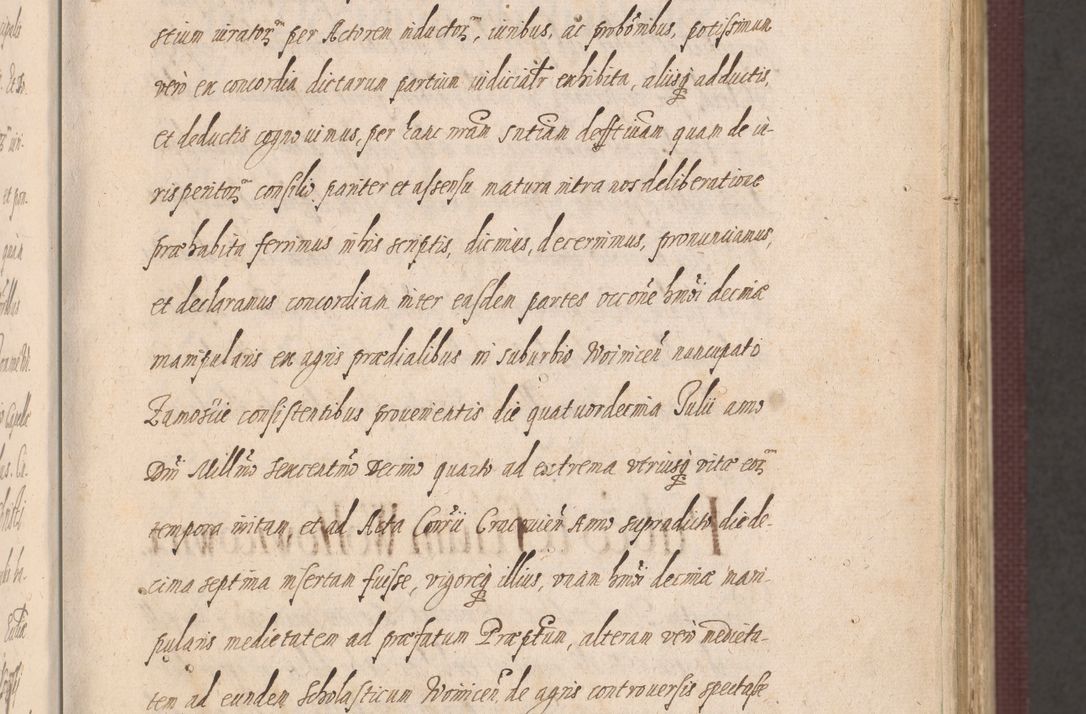 stium iurator per Actorem inductor, iuribus, ac probõnibus, potissimum
vero ex concordia dictarum partium iudicialr exhibita, aliisq adductis,
et deductis cognovimus, per hanc nram sntiam deffitivam quam de iu-
risperitor consilio pariter et assensu matura intra nos deliberatione
præhabita ferrimus in his scriptis, dicimus, decernimus, pronunciamus,
et declaramus concordiam inter easdem partes occõne hmõi decimæ
manipularis ex agris prædialibus in suburbio Woiniceñ nuncupato
Zamoście consistentibus provenientis die quatuordecima Julii anno
Dni Millmo sexcentmo Decimo quarto ad extrema utriusq vitæ eor
tempora initam, et ad Acta Consrii Cracovieñ Anno supradicto die de-
cima septima insertam fuisse, vigoreq illius, unam hmõi decimæ mani-
pularis medietatem ad præfatum Præptum, alteram vero medieta-
tem ad eundem Scholasticum Woiniceñ de agris controversis spectasse